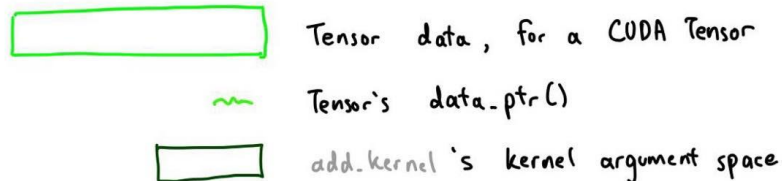 Tensor data, for a CUDA Tensor
Tensor's data_ptr()
add_kernel's kernel argument space